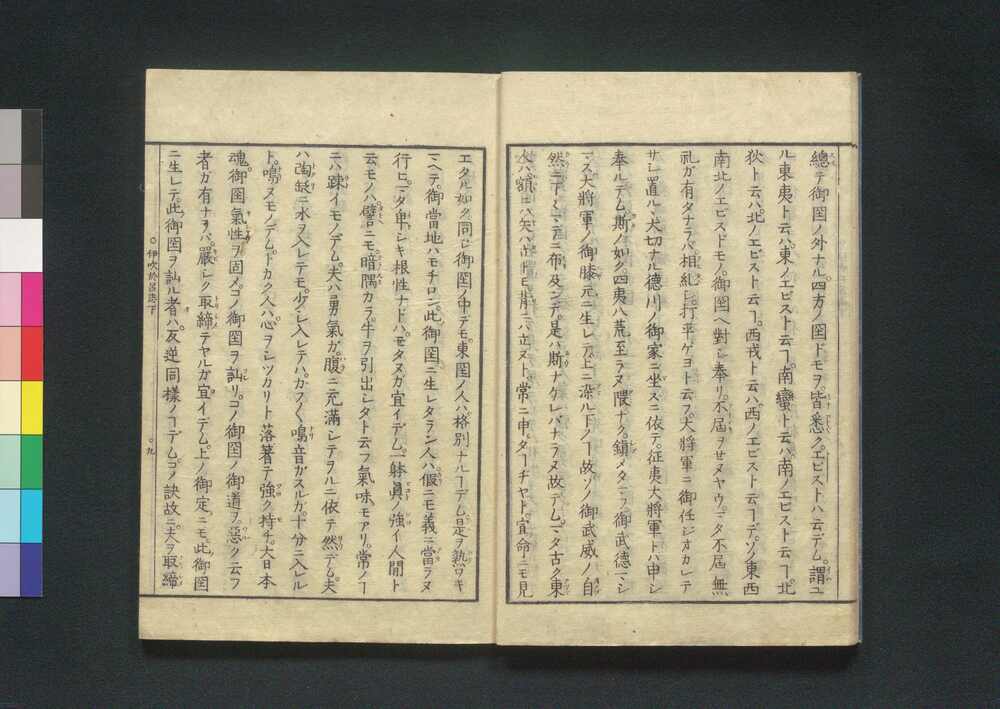 總テ御国ノ外ナル。四方ノ国ドモヲ。皆悉ク。エビストハ云デム。謂ユ
ル東夷ト云ハ。東ノエビスト云ヿ。南蠻ト云ハ。南ノエビスト云ヿ。北
狄ト云ハ。北ノエビスト云ヿ。西戎ト云ハ。西ノエビスト云ヿデ。ソノ東西
南北ノエビスドモノ。御国ヘ對シ奉リ。不屆ヲセヌヤウデタ不屆無
礼ガ有タナラバ相糺ヒ。打平ゲヨト云フ。大將軍ニ御任ジオカレテ
サシ置ルヽ大切ナル德川ノ御家ニ坐スニ依テ。征夷大將軍トハ申シ
奉ルデム。斯ノ如ク。四夷八荒至ラヌ隈ナク。鎮メタマフ。御武德マシ
マス。大將軍ノ御膝元ニ生レテ。上ニ深ル下ノヿ故。ソノ御武威ノ自
然ニ下ニマデニ布及ンデ。是ハ斯ナケレバナラヌ故デム。マタ古ク東
人ハ。額ニハ矢ハ立トモ。背ニハ立ヌト。常ニ申ス者ヂヤト。宣命ニモ見
エタル如ク同じ御国ノ中デモ。東国ノ人ハ格別ナルヿデム。是ヲ熟ワキ
マヘテ。御當地ハモチロン。此御国ニ生レタラン人ハ。假ニモ義ニ當ラヌ
行ヒ。マタ卑シキ根性ナドハ。モタヌガ宜イデム。一躰眞ノ強イ人間ト
云モノハ。譬ニモ暗隅カラ牛ヲ引出シタト云フ氣味モアリ。常ノヿ
ニハ疎イモノデム。夫ハ勇氣ガ。腹ニ充滿シテヲルニ依テ然デム。夫
ハ陶瓶ニ水ヲ入レテモ。少シ入レテハ。ガブ〱鳴音ガスルガ。十分ニ入レル
ト。鳴ヌモノデム。ドカク人ハ。心ヲシツカリト落著テ。強ク持チ。大日本
魂御国氣性ヲ固メ。コノ御国ヲ訕リ。コノ御国ノ御道ヲ惡ク云フ
者ガ有ナラバ。嚴シク取締テヤルガ宜イデム。上ノ御定ニモ。此御国
ニ生レテ。此御国ヲ訕ル者ハ。反逆同樣ノヿデム。コノ訣故ニ夫ヲ取締
伊吹於呂志下
九